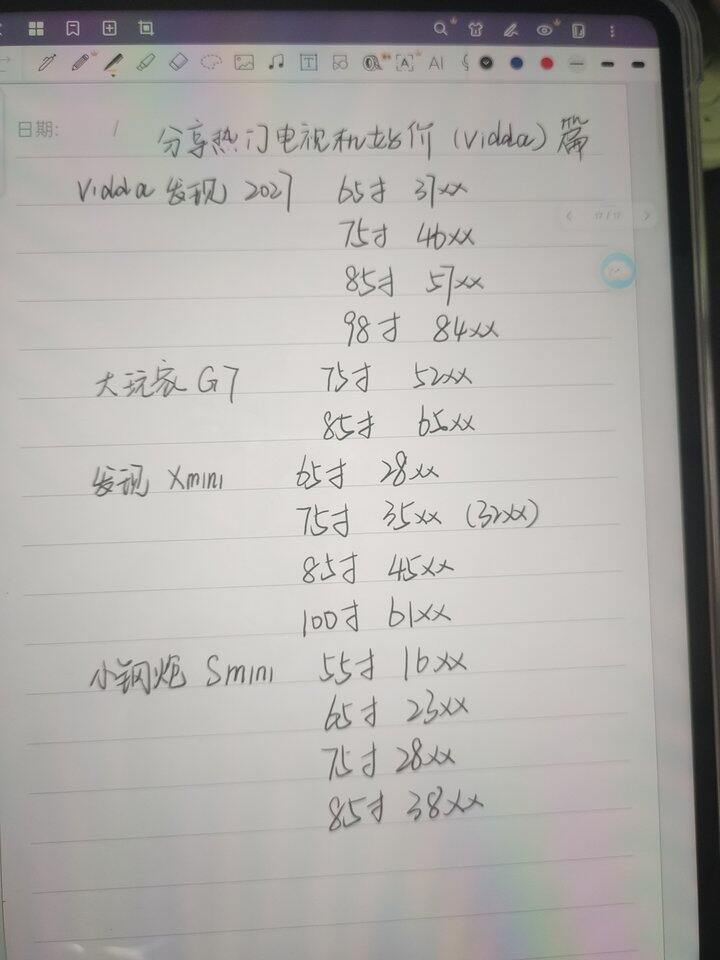 日期: /
分享热门电视机好价 (Vidda) 篇
Vidda 发现 2027 65寸 37xx
75寸 46xx
85寸 57xx
98寸 84xx
大玩家 G7 75寸 52xx
85寸 65xx
发现 Xmini 65寸 28xx
75寸 35xx (32xx)
85寸 45xx
100寸 61xx
小钢炮 Smini 55寸 16xx
65寸 23xx
75寸 28xx
85寸 38xx